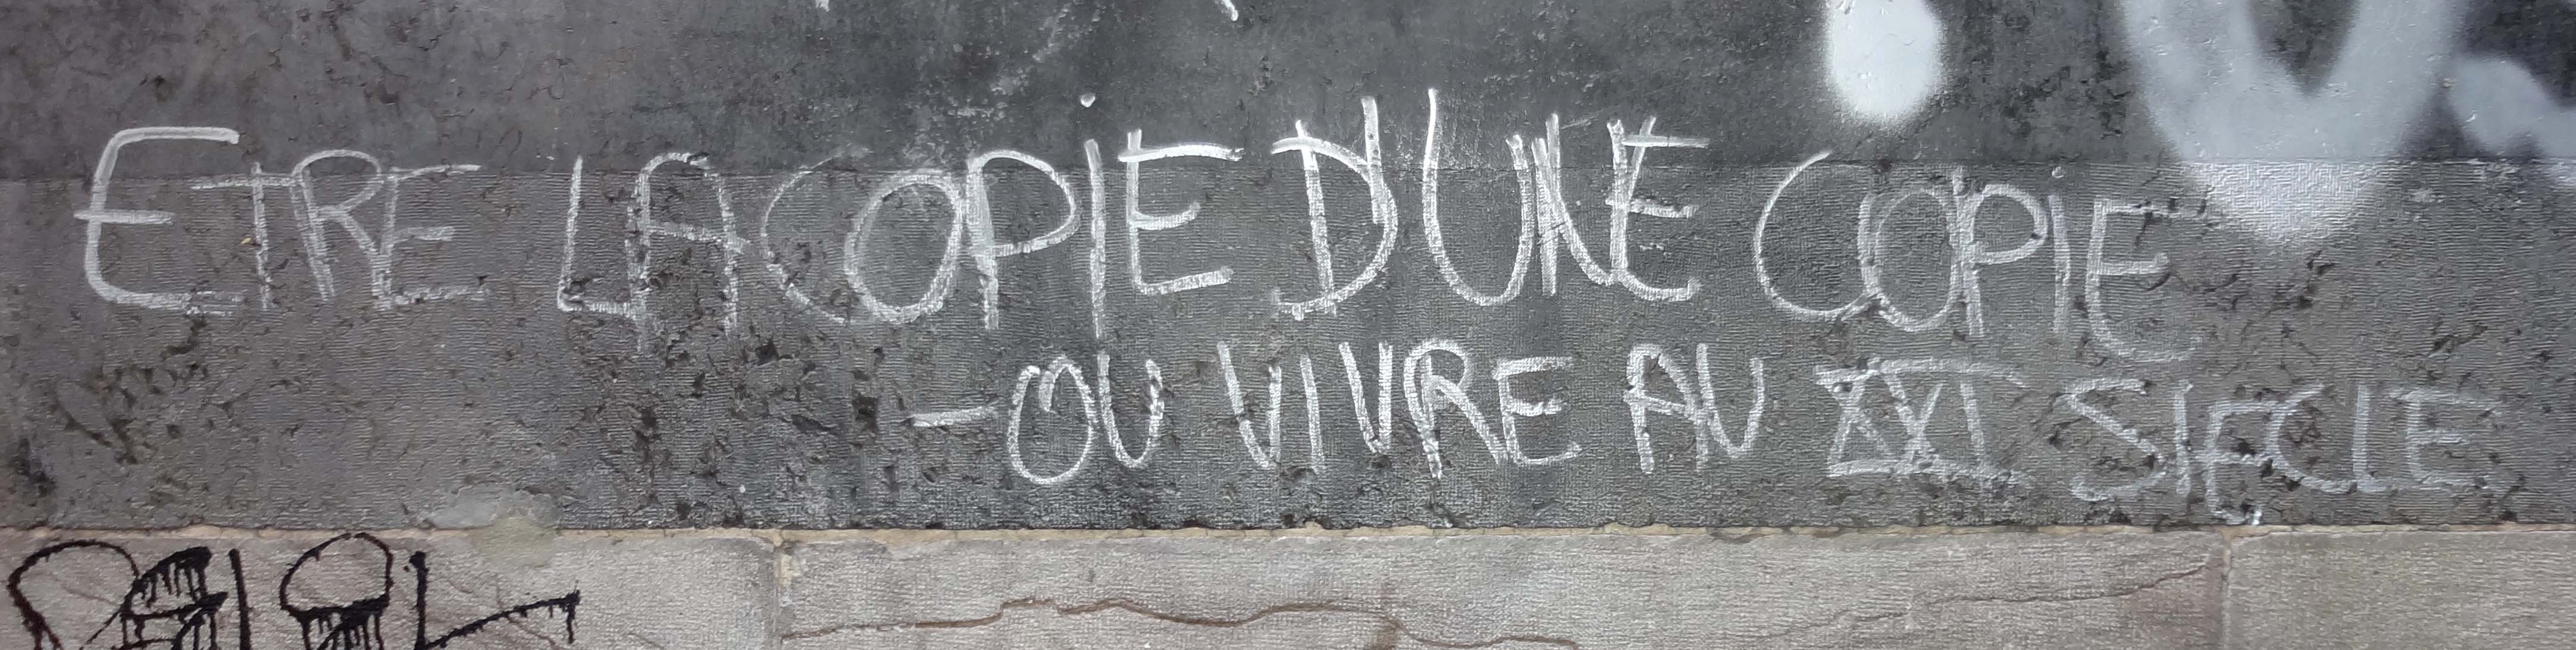 ETRE LA COPIE D'UNE COPIE
-OU VIVRE AU XXI SIECLE